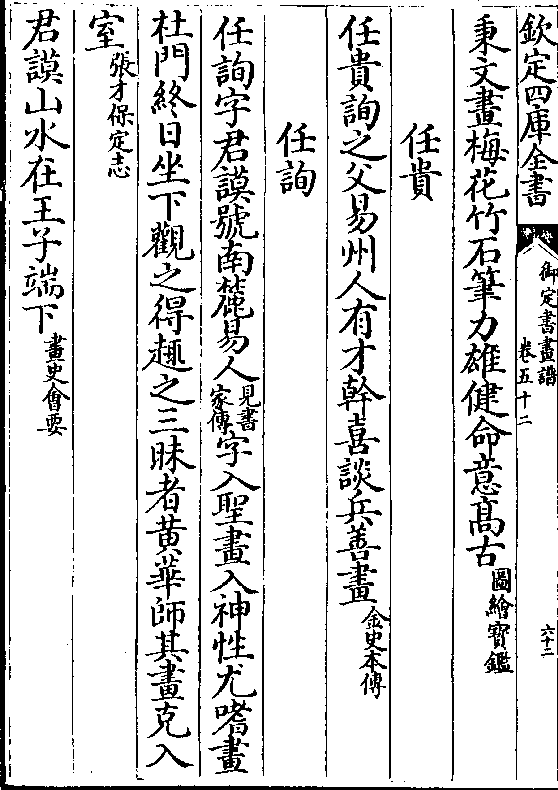 欽定四庫全書
御定書畫譜
卷五十二
六十二
秉文畫梅花竹石筆力雄健命意髙古圖繪寶鑑
任貴
任貴詢之父易州人有才幹喜談兵善畫金史本傳
任詢
任詢字君謨號南麓易人見書家傳字入聖畫入神性尤嗜畫
杜門終日坐下觀之得趣之三昧者黄華師其畫克入
室張才保定志
君謨山水在王子端下畫史會要